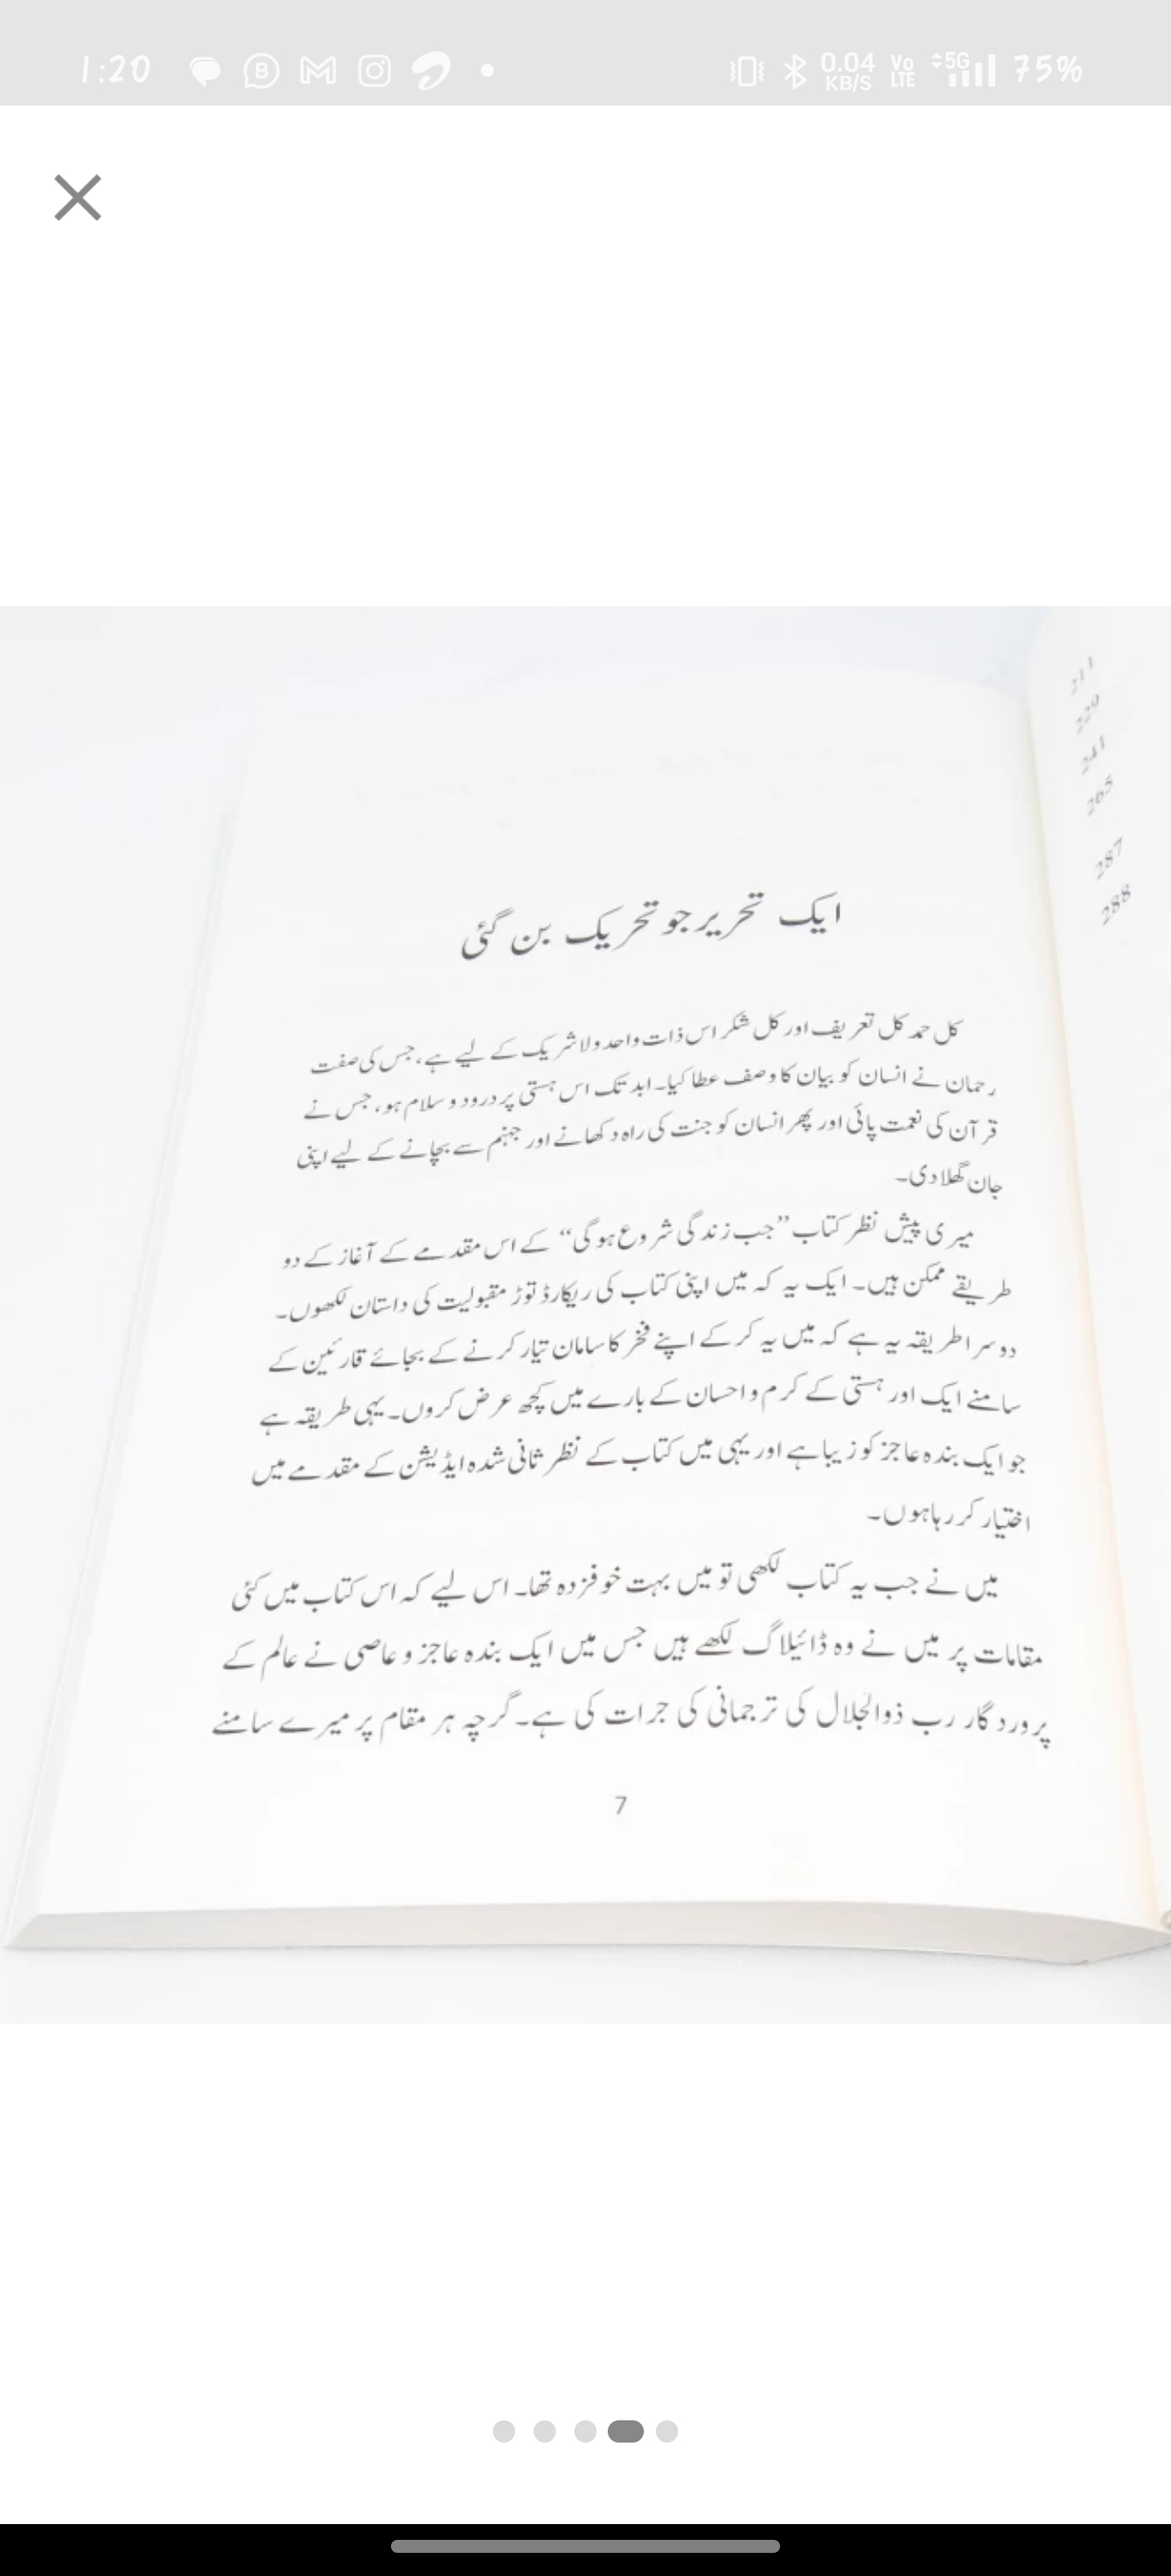 1:20
0.04 KB/S
Vo LTE
5G
75%
211
229
241
265
287
288
ایک تحریر جو تحریک بن گئی
کل حمد کل تعریف اور کل شکر اس ذات واحد ولا شریک کے لیے ہے، جس کی صفت
رحمان نے انسان کو بیان کا وصف عطا کیا۔ ابد تک اس ہستی پر درود و سلام ہو، جس نے
قرآن کی نعمت پائی اور پھر انسان کو جنت کی راہ دکھانے اور جہنم سے بچانے کے لیے اپنی
جان گھلا دی۔
میری پیش نظر کتاب ”جب زندگی شروع ہوگی“ کے اس مقدمے کے آغاز کے دو
طریقے ممکن ہیں۔ ایک یہ کہ میں اپنی کتاب کی ریکارڈ توڑ مقبولیت کی داستان لکھوں۔
دوسرا طریقہ یہ ہے کہ میں یہ کرکے اپنے فخر کا سامان تیار کرنے کے بجائے قارئین کے
سامنے ایک اور ہستی کے کرم و احسان کے بارے میں کچھ عرض کروں۔ یہی طریقہ ہے
جو ایک بندہ عاجز کو زیبا ہے اور یہی میں کتاب کے نظر ثانی شدہ ایڈیشن کے مقدمے میں
اختیار کر رہا ہوں۔
میں نے جب یہ کتاب لکھی تو میں بہت خوفزدہ تھا۔ اس لیے کہ اس کتاب میں کئی
مقامات پر میں نے وہ ڈائیلاگ لکھے ہیں جس میں ایک بندہ عاجز و عاصی نے عالم کے
پروردگار رب ذوالجلال کی ترجمانی کی جرات کی ہے۔ گرچہ ہر مقام پر میرے سامنے
7